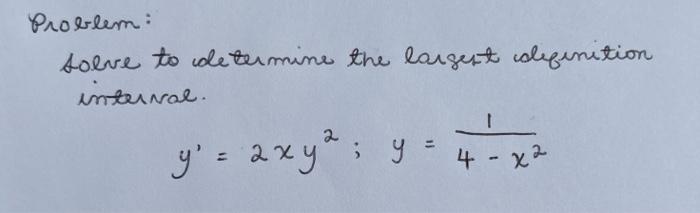 Problem:
Solve to determine the largest definition
interval.
y' = 2xy² ; y = 1/(4 - x²)